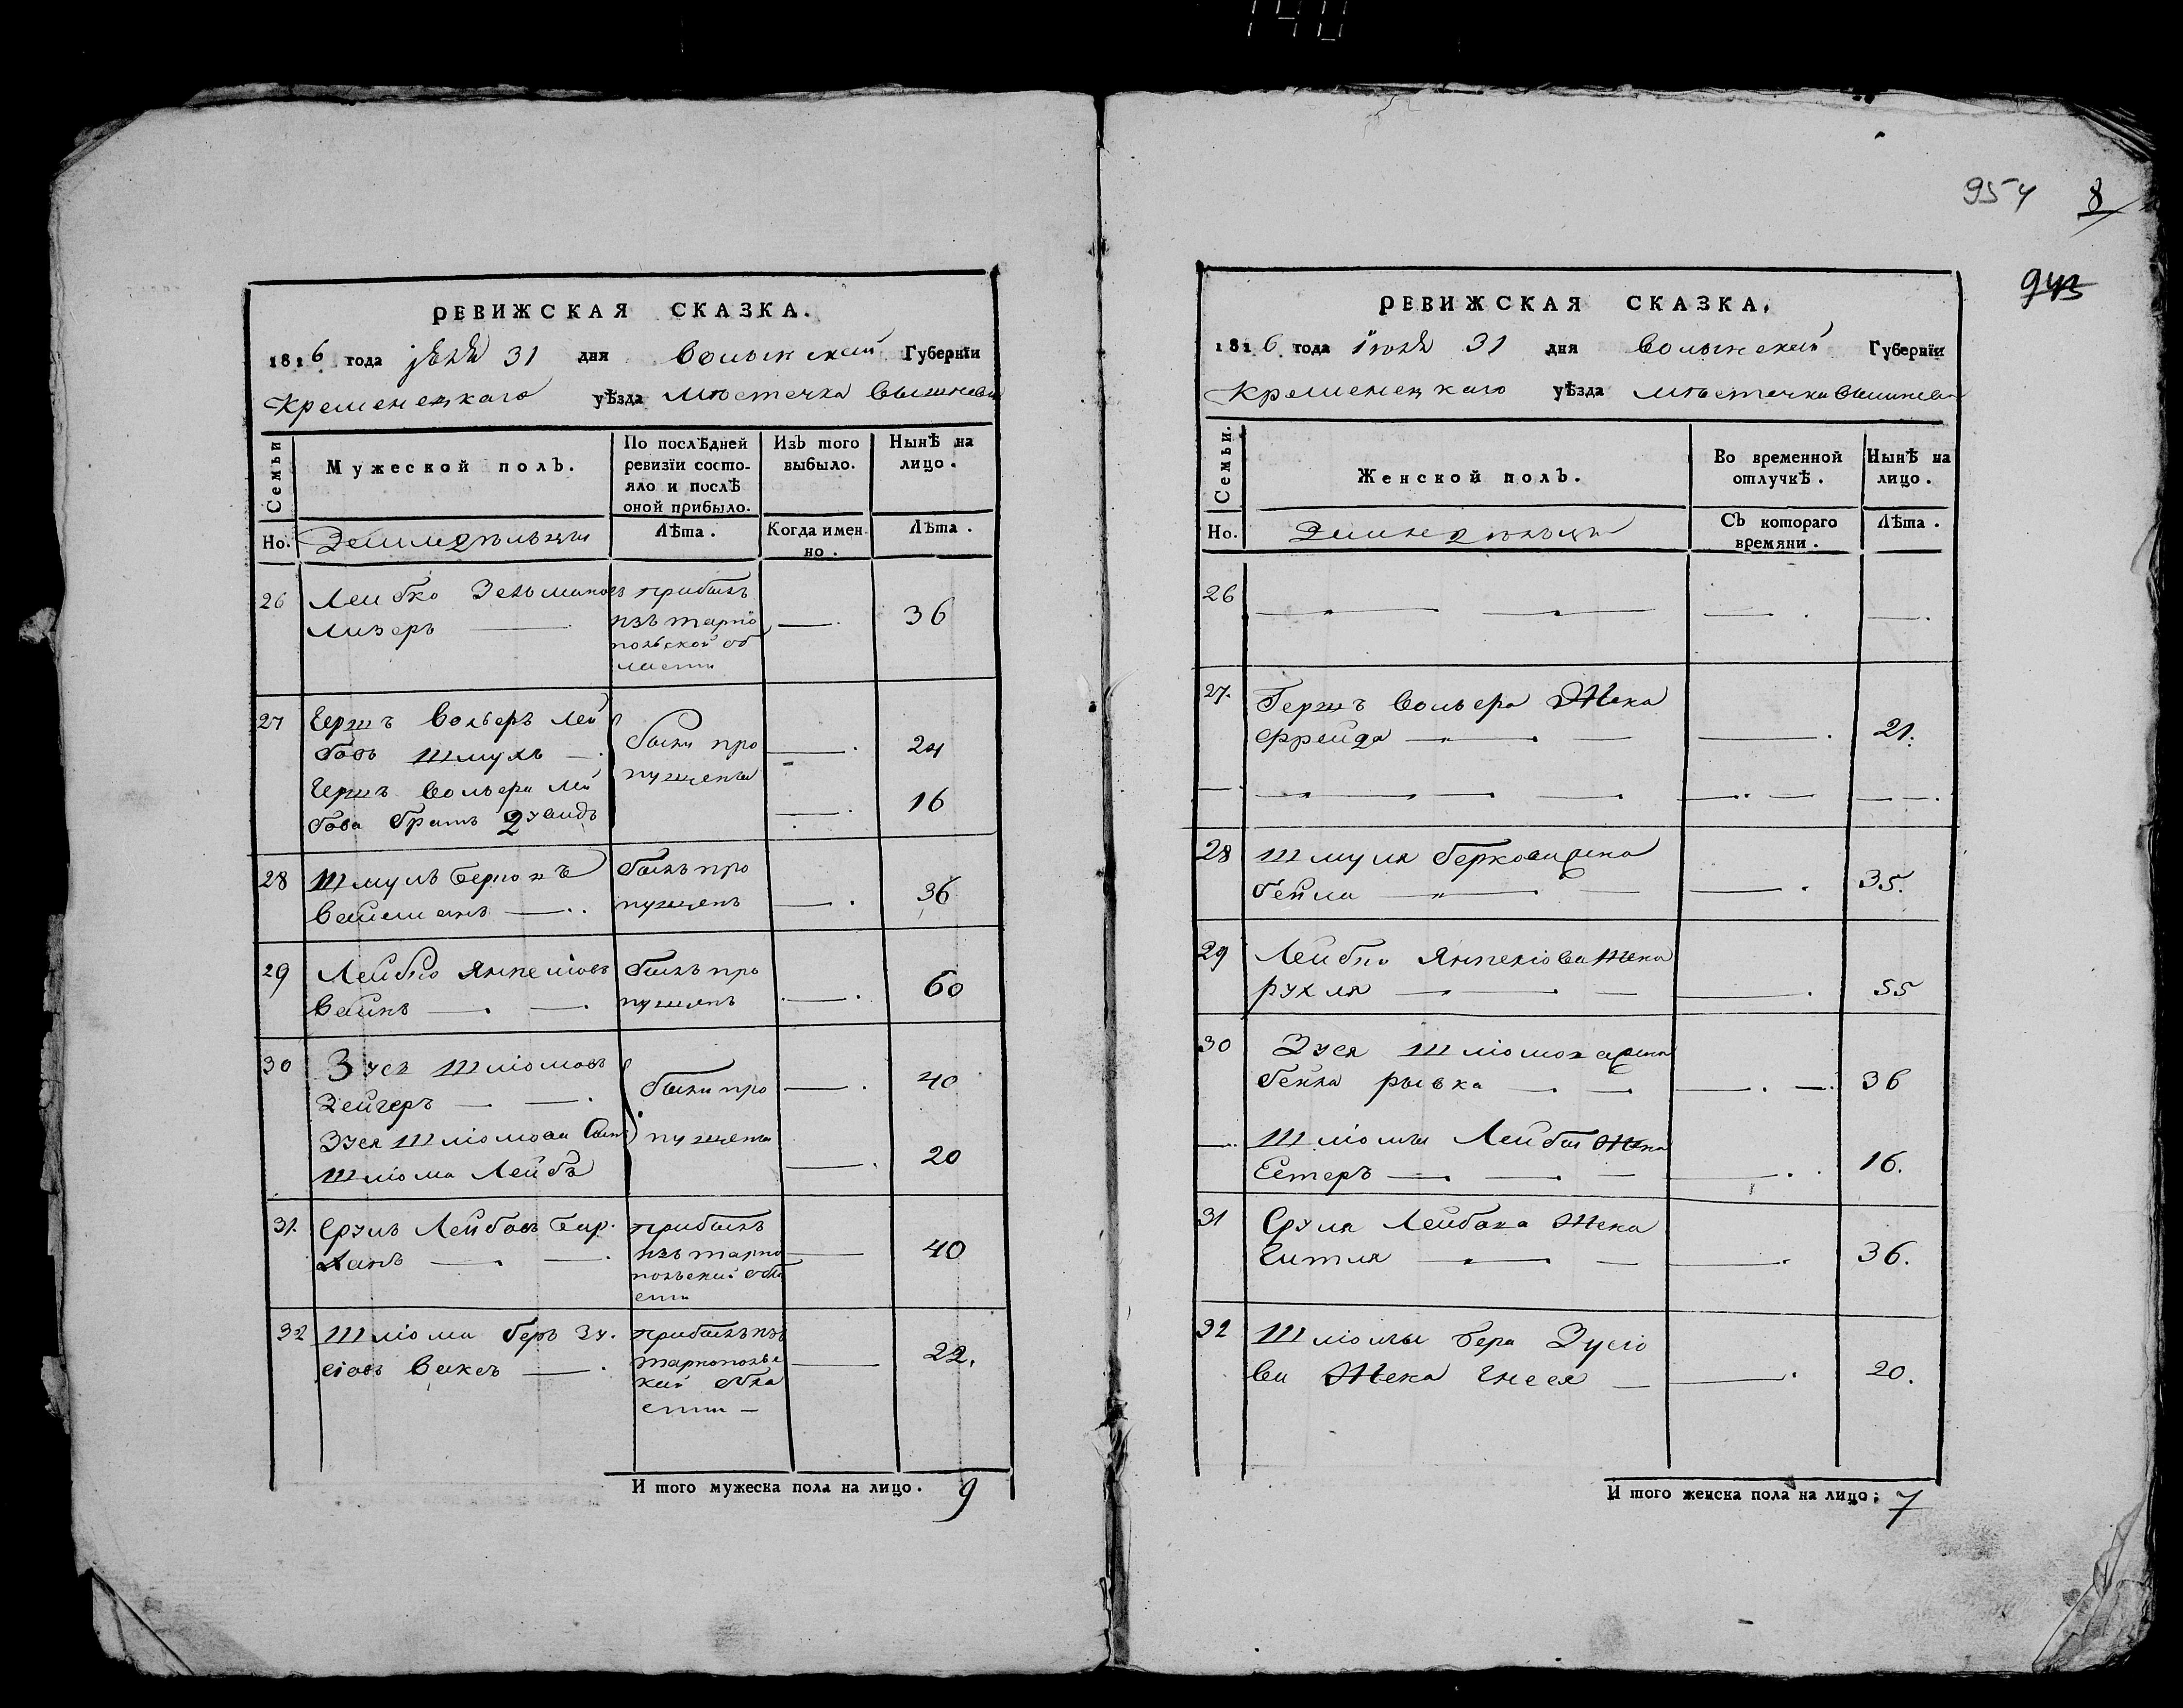 140
954 8
943
РЕВИЖСКАЯ СКАЗКА.
1816 года іюля 31 дня Волынской Губернїи
Кременецкаго уѣзда мѣстечка Вишневца
Семьи
Мужеской полъ.
По послѣдней ревизїи состояло и послѣ оной прибыло.
Изъ того выбыло.
Нынѣ на лицо.
Но.
Лѣта.
Когда именно.
Лѣта.
26 Лейбко Зельмановъ прибылъ
Лизеръ — изъ тарно — 36
польской об
ласти
27 Герш Вольфъ Лей
бовъ Шмукъ — были про — 24
Герш Вольфа Лей пущены
бова братъ Дувидъ — 16
28 Шмуль Берковъ былъ про
Вайсманъ — пущенъ — 36
29 Лейбко Янкелiовъ былъ про
Вайнъ — — пущенъ — 60
30 Зусь Шлiомовъ
Зейгеръ — — были про — 40
Зуся Шлiомова Сынъ пущены
Шлiома Лейбъ — 20
31 Сруль Лейбовъ Бар- прибылъ
ханъ — — изъ тарно — 40
польской обла
сти
32 Шлiома беръ Зу- прибылъ изъ
сiовъ Ваксъ — тарнопольс — 22.
кой обла
сти —
И того мужеска пола на лицо. 9
РЕВИЖСКАЯ СКАЗКА.
1816 года іюля 31 дня Волынской Губернїи
Кременецкаго уѣзда мѣстечка Вишневца
Семьи.
Женской полъ.
Во временной отлучкѣ.
Нынѣ на лицо.
Но.
Съ котораго времяни.
Лѣта.
26 — — — —
27. Герш Вольфа Жена
Фрейда — — — 21.
— — — — — —
28 Шмуля Берковаѣена
бейла — — — 35.
29 Лейбко Янкелiова Жена
рухля — — — 55
30 Зуся Шлiомоваѣена
бейла рывка — — — 36
— Шлiомы Лейбы Жена
Естеръ — — — — 16.
31 Сруля Лейбова Жена
Гитля — — — 36.
32 Шлiомы Бера Зусiо
ва Жена Гнеся — — 20.
И того женска пола на лицо: 7